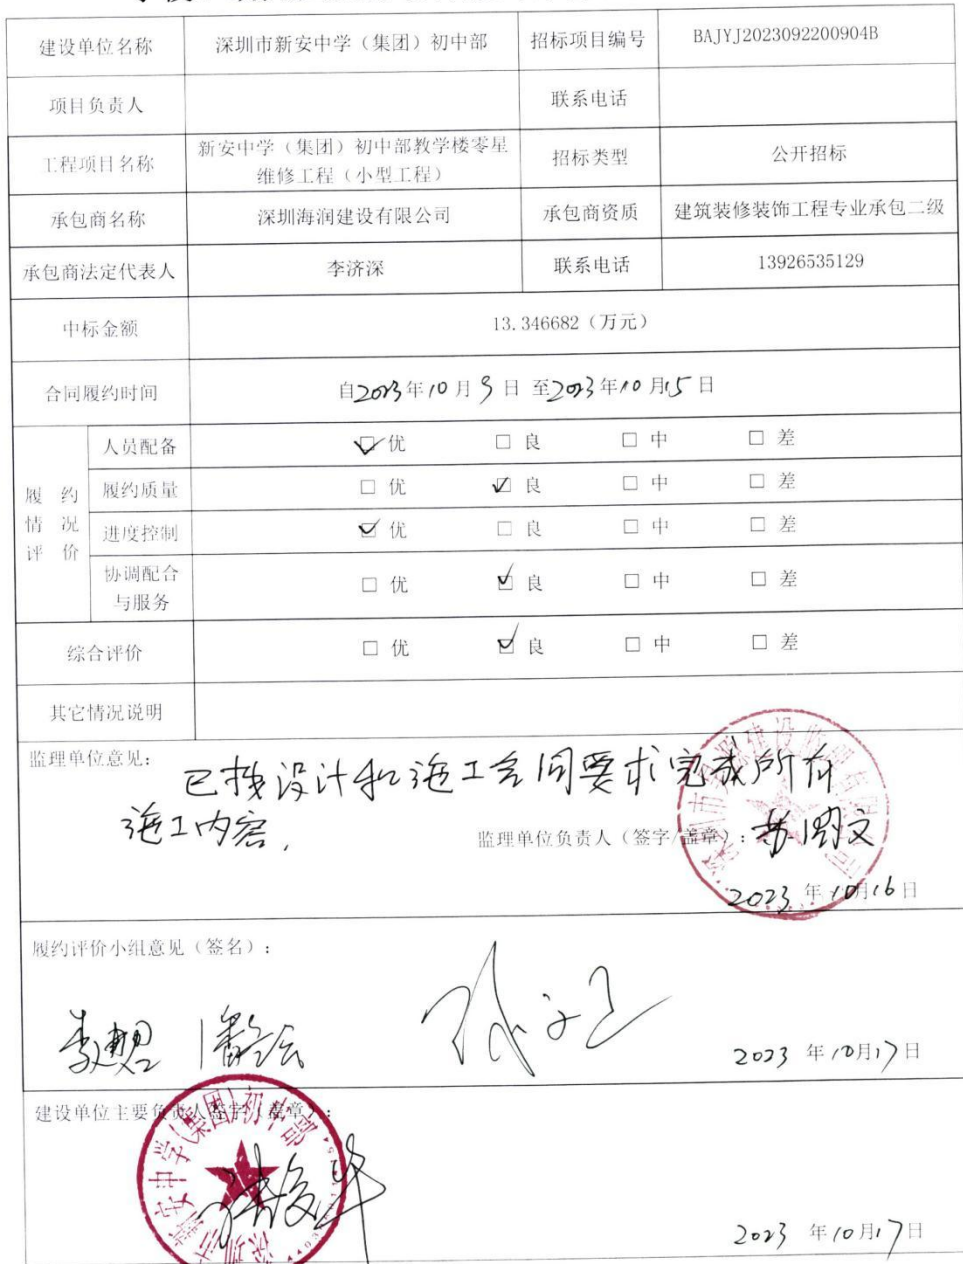 建设单位名称 深圳市新安中学（集团）初中部 招标项目编号 BAJYJ2023092200904B
项目负责人 联系电话
工程项目名称 新安中学（集团）初中部教学楼零星
维修工程（小型工程） 招标类型 公开招标
承包商名称 深圳海润建设有限公司 承包商资质 建筑装修装饰工程专业承包二级
承包商法定代表人 李济深 联系电话 13926535129
中标金额 13.346682（万元）
合同履约时间 自2023年10月9日 至2023年10月15日
履约
情况
评价
人员配备 ☑优 □良 □中 □差
履约质量 □优 ☑良 □中 □差
进度控制 ☑优 □良 □中 □差
协调配合
与服务 □优 ☑良 □中 □差
综合评价 □优 ☑良 □中 □差
其它情况说明
监理单位意见：
已按设计和施工合同要求完成所有
施工内容.
监理单位负责人（签字/盖章）：
2023年10月16日
履约评价小组意见（签名）：
2023年10月17日
建设单位主要负责人签字（盖章）：
深圳市新安中学(集团)初中部
2023年10月17日